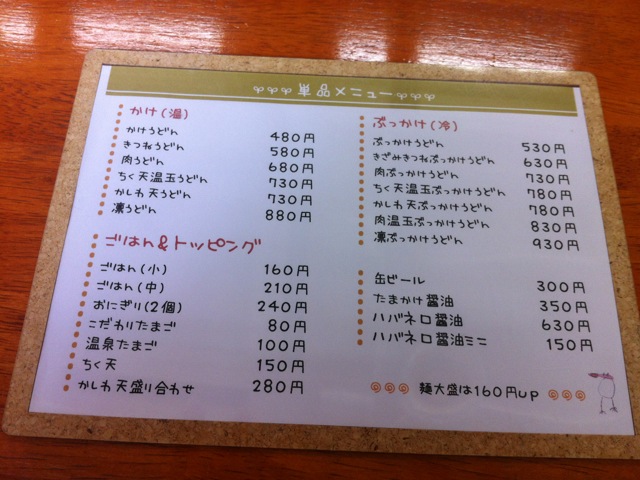 単品メニュー
かけ(温)
かけうどん 480円
きつねうどん 580円
肉うどん 680円
ちく天温玉うどん 730円
かしわ天うどん 730円
凛うどん 880円
ごはん&トッピング
ごはん(小) 160円
ごはん(中) 210円
おにぎり(2個) 240円
こだわりたまご 80円
温泉たまご 100円
ちく天 150円
かしわ天盛り合わせ 280円
ぶっかけ(冷)
ぶっかけうどん 530円
きざみきつねぶっかけうどん 630円
肉ぶっかけうどん 730円
ちく天温玉ぶっかけうどん 780円
かしわ天ぶっかけうどん 780円
肉温玉ぶっかけうどん 830円
凛ぶっかけうどん 930円
缶ビール 300円
たまかけ醤油 350円
ハバネロ醤油 630円
ハバネロ醤油ミニ 150円
麺大盛は160円up